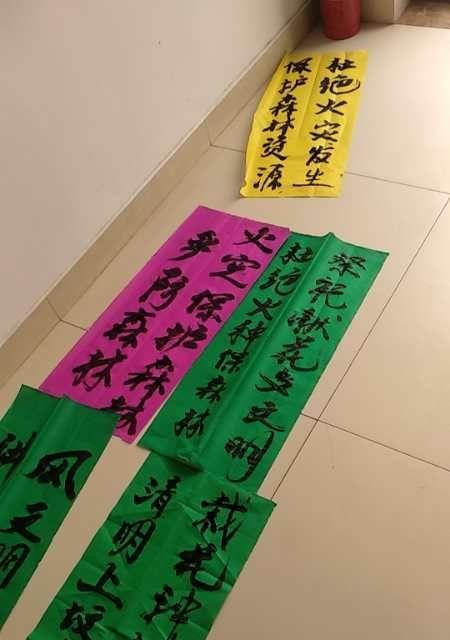 杜绝火灾发生
保护森林资源
火灾保护森林
多防森林
祭祀献花文明
杜绝火种保森林
栽花种
清明上坟
风文明